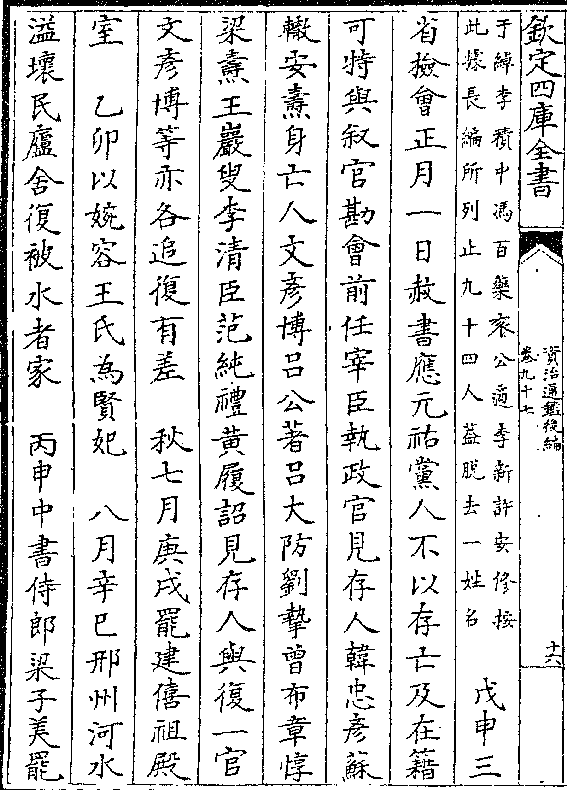 欽定四庫全書
資治通鑑後編
卷九十七
十六
于綽李積中馮百藥裵公適李新許安修按
此㨿長編所列止九十四人葢脱去一姓名
戊申三
省檢會正月一日赦書應元祐黨人不以存亡及在籍
可特與叙官勘會前任宰臣執政官見存人韓忠彦蘇
轍安燾身亡人文彦博吕公著吕大防劉摯曾布章惇
梁燾王巖叟李清臣范純禮黄履詔見存人與復一官
文彦博等亦各追復有差　秋七月庚戌罷建僖祖殿
室　乙卯以婉容王氏為賢妃　八月辛巳邢州河水
溢壞民廬舍復被水者家　丙申中書侍郎梁子美罷